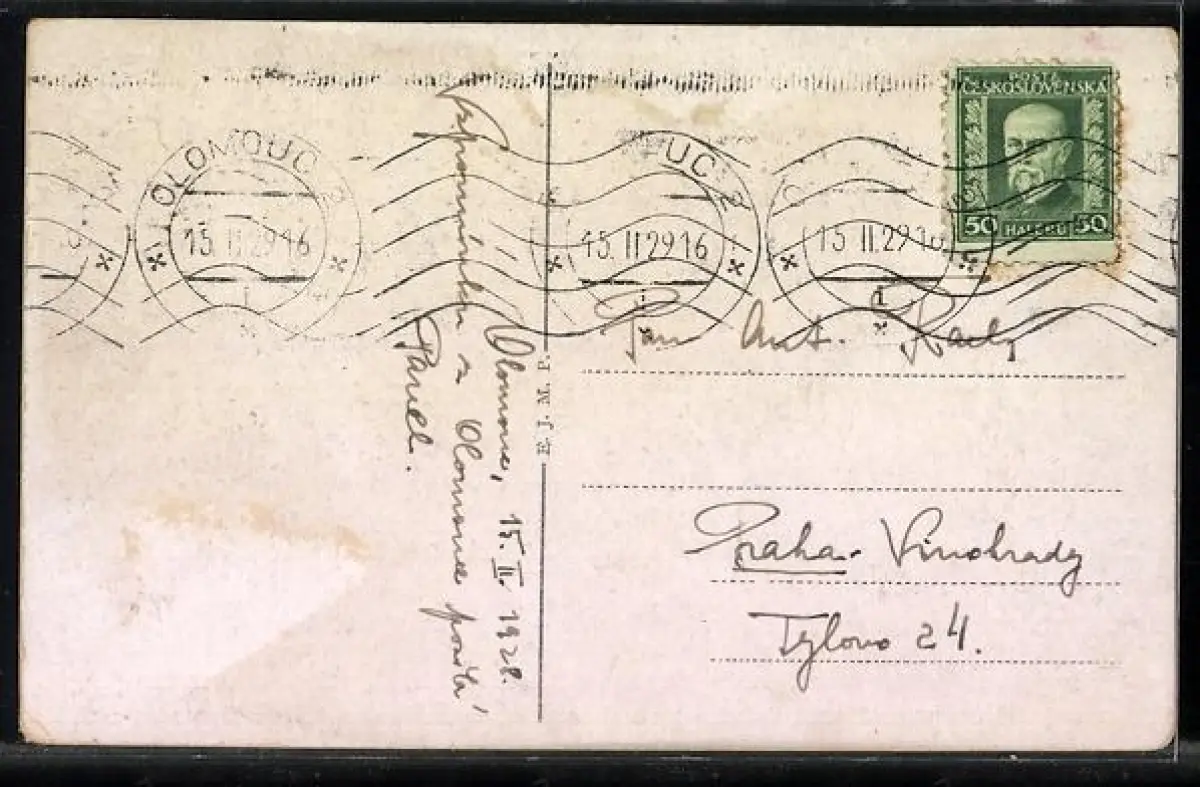 POSTA
ČESKOSLOVENSKÁ
50 HALÉŘŮ 50
OLOMOUC 2
15. II. 29 16
1
UC 2
15. II. 29 16
1
15. II. 29 16
1
Olomouc, 15. II. 1928.
z Olomouce
Pavel.
E. J. M. P.
Pan Ant.
Praha - Vinohrady
Tylovo 24.